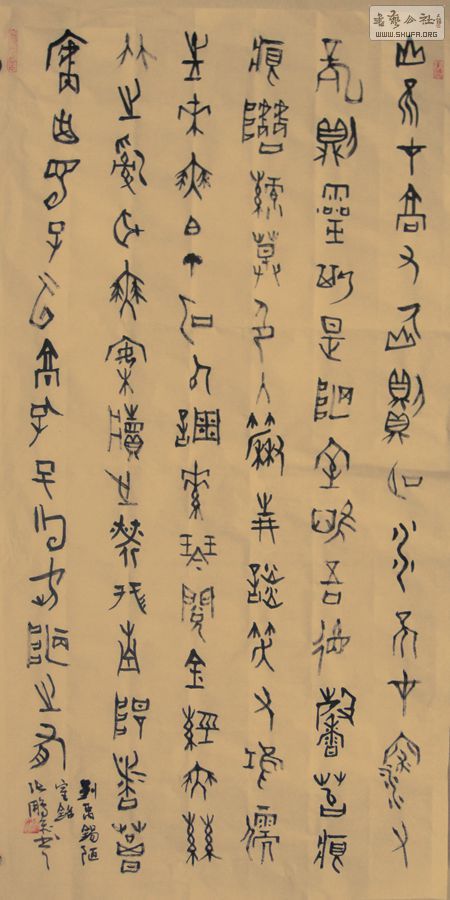 山不在高有仙則名水不在深有
龍則靈斯是陋室惟吾德馨苔痕
痕階綠草色入簾青談笑有鴻儒
往來無白丁可以調素琴閱金經無絲
竹之亂耳無案牘之勞形南陽諸葛
廬西蜀子云亭孔子云何陋之有
劉禹錫陋
室銘
張鵬書
書藝公社
WWW.SHUFA.ORG